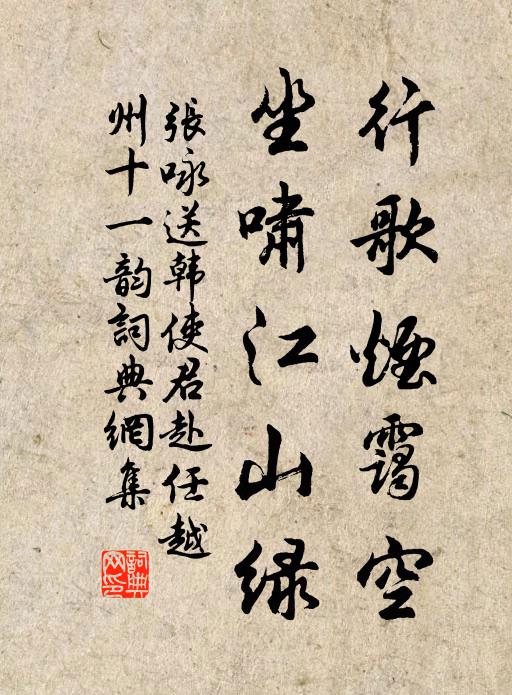 行歌煙靄空
坐嘯江山绿
張咏送韩使君赴任越
州十一韵詞典網集
詞典
网印